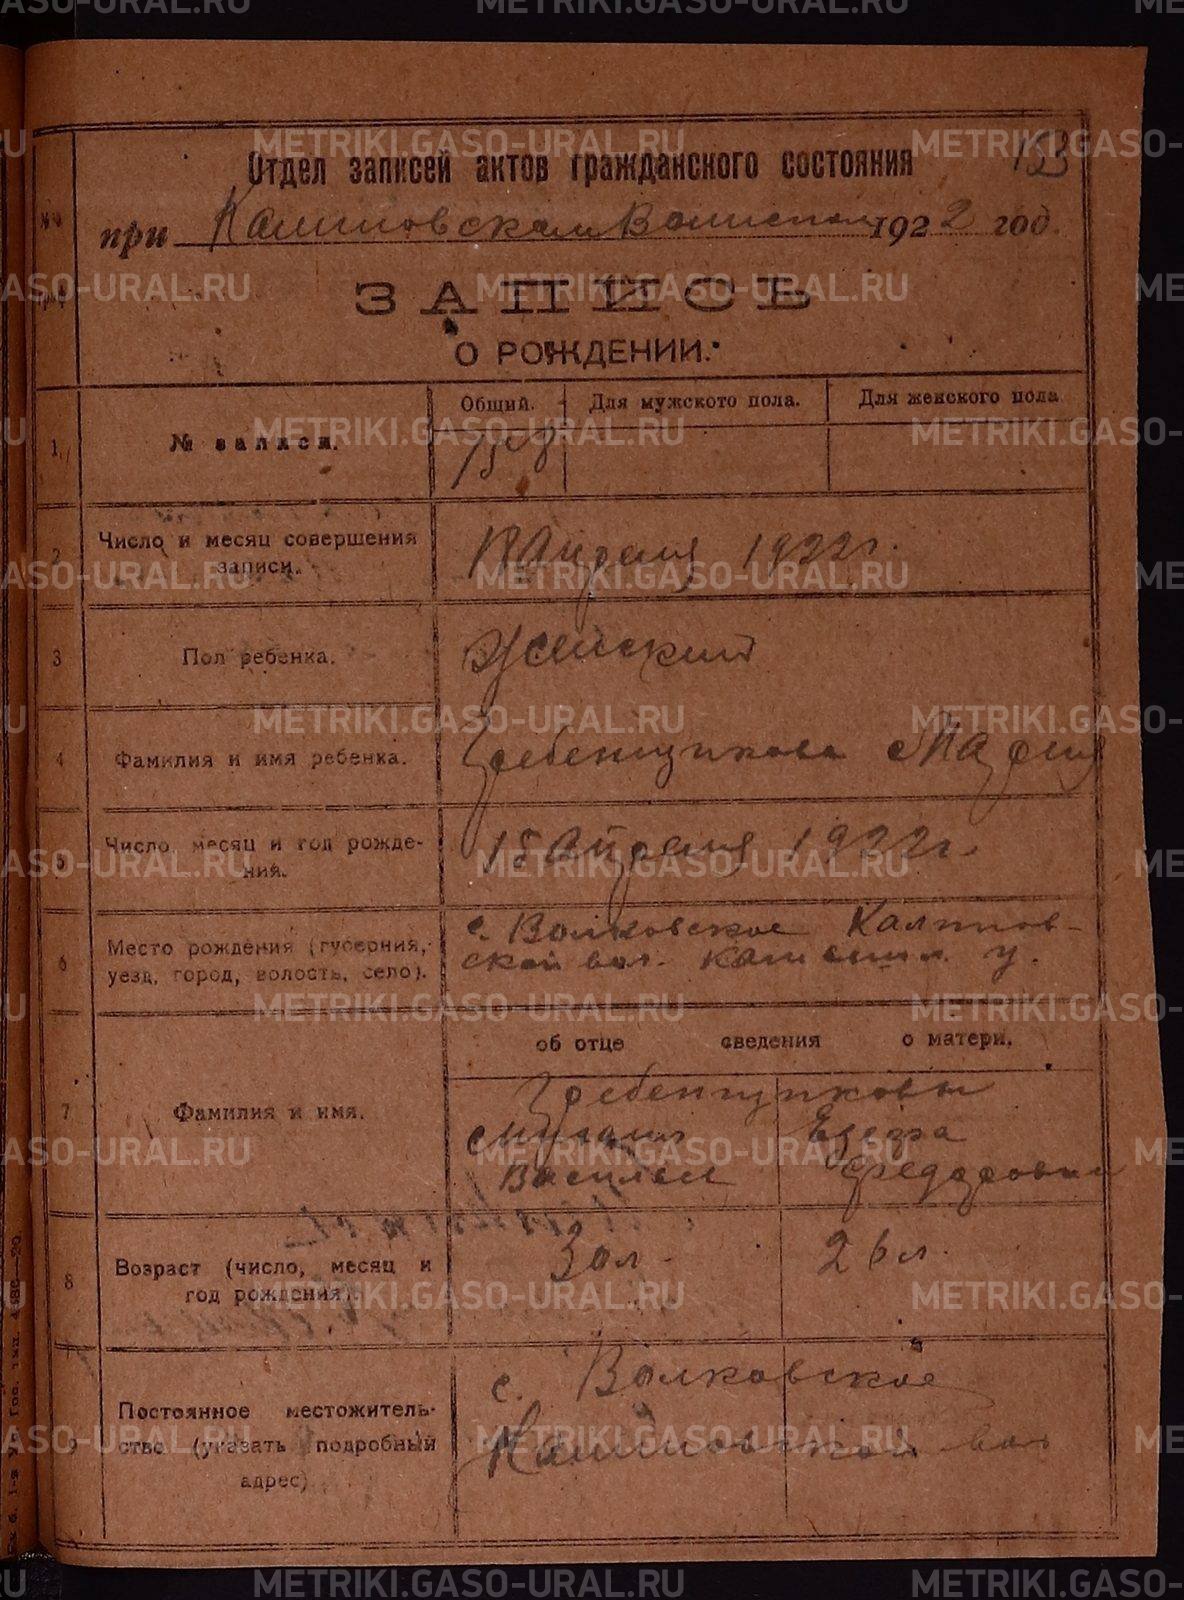 153
Отдел записей актов гражданского состояния
при Калиновском Волисполк 1922 год.
ЗАПИСЬ
О РОЖДЕНИИ.
Общий. Для мужского пола. Для женского пола
1. № записи. 158
2 Число и месяц совершения записи. Апреля 1922 г.
3 Пол ребенка. Женский
4 Фамилия и имя ребенка. Гребенщикова Мария
5 Число, месяц и год рожде-
ния. 15 Апреля 1922 г.
6 Место рождения (губерния,
уезд, город, волость, село). с. Волковское Калинов-
ской вол. Камышл. у.
об отце сведения о матери.
7 Фамилия и имя. Гребенщиковы
Михаил
Васильев Федоровна
8 Возраст (число, месяц и
год рождения). 30 л. 26 л.
9 Постоянное местожитель-
ство (указать подробный
адрес) с. Волковское
Калиновской вол
METRIKI.GASO-URAL.RU